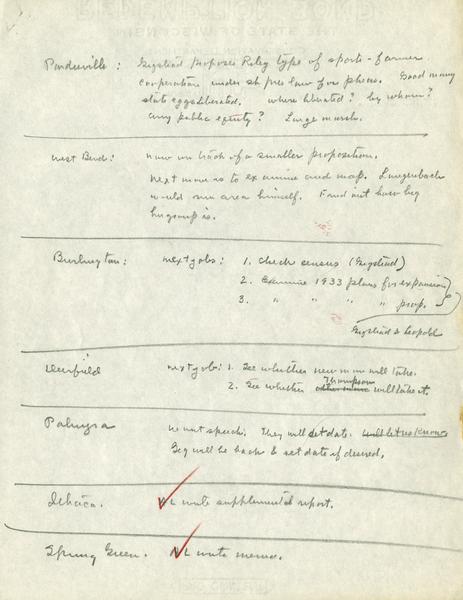 Pardeeville: Gigstead proposes Riley type of sports-farmer
cooperation under sh pres law for pheas. Good many
state eggs liberated. where liberated? by whom?
any public equity? Large marsh.
West Bend: now on track of a smaller proposition.
Next move is to examine and map. Laugenbach
would run area himself. Find out how big
his group is.
Burlington: next jobs: 1. Check census (Gigstead)
2. Examine 1933 plans for expansion
3. " " " " prop.
Gigstead & Leopold
Deerfield next job: 1. See whether new man will take.
2. See whether Thompson will take it.
Palmyra want speech. They will set date. will let us know
Gig will be back & set date if desired.
Ithaca. AL write supplemental report.
Spring Green. AL write memo.